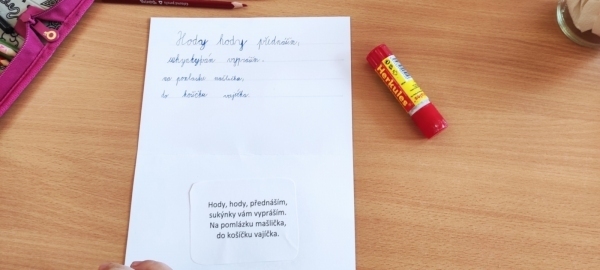 Hody hody přednáším,
vypráším.
na pomlázku mašlička,
do košíčku vajíčka.
Herkules
Hody, hody, přednáším,
sukýnky vám vypráším.
Na pomlázku mašlička,
do košíčku vajíčka.